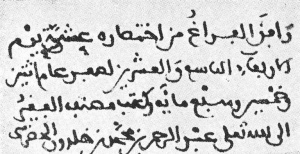 وافق الفراغ من اختصاره عشية يوم
الاربعاء التاسع والعشرين لصفر عام اثنين
وخمسين وسبع مائة وكتب مصنفه الفقير
الى الله تعلى عبد الرحمن بن محمد بن خلدون الحضرمي